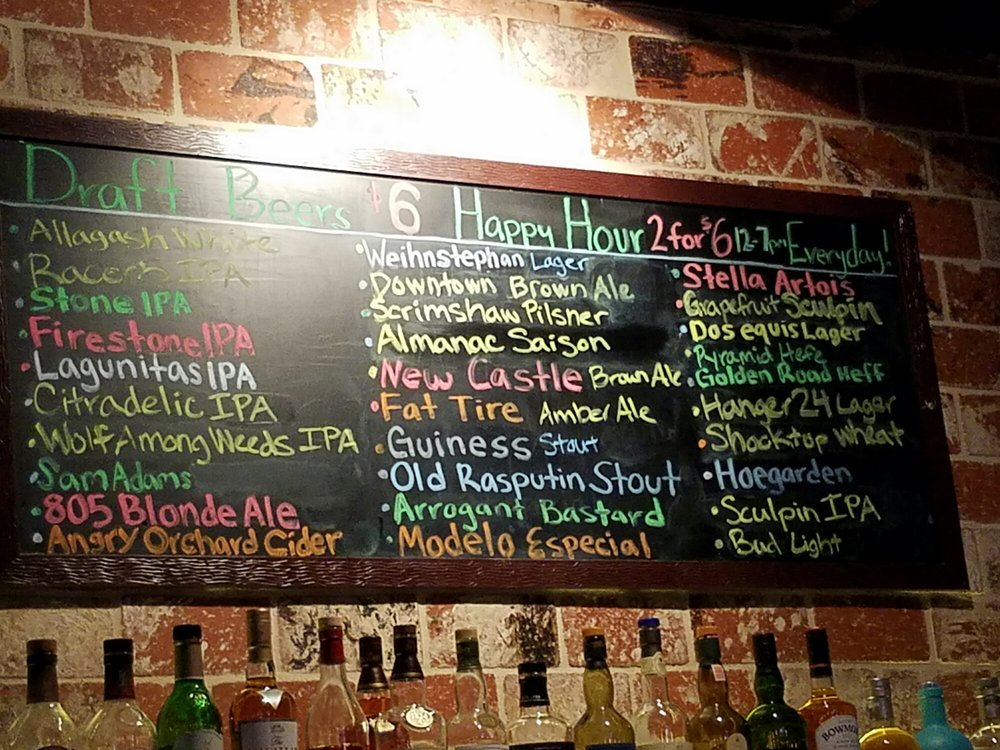 Draft Beers $6 Happy Hour 2 for $6 12-7pm Everyday!
Allagash White
Racer 5 IPA
Stone IPA
Firestone IPA
Lagunitas IPA
Citradelic IPA
Wolf Among Weeds IPA
Sam Adams
805 Blonde Ale
Angry Orchard Cider
Weihnstephan Lager
Downtown Brown Ale
Scrimshaw Pilsner
Almanac Saison
New Castle Brown Ale
Fat Tire Amber Ale
Guiness Stout
Old Rasputin Stout
Arrogant Bastard
Modelo Especial
Stella Artois
Grapefruit Sculpin
Dos equis Lager
Pyramid Hefe
Golden Road Heff
Hanger 24 Lager
Shocktop Wheat
Hoegarden
Sculpin IPA
Bud Light